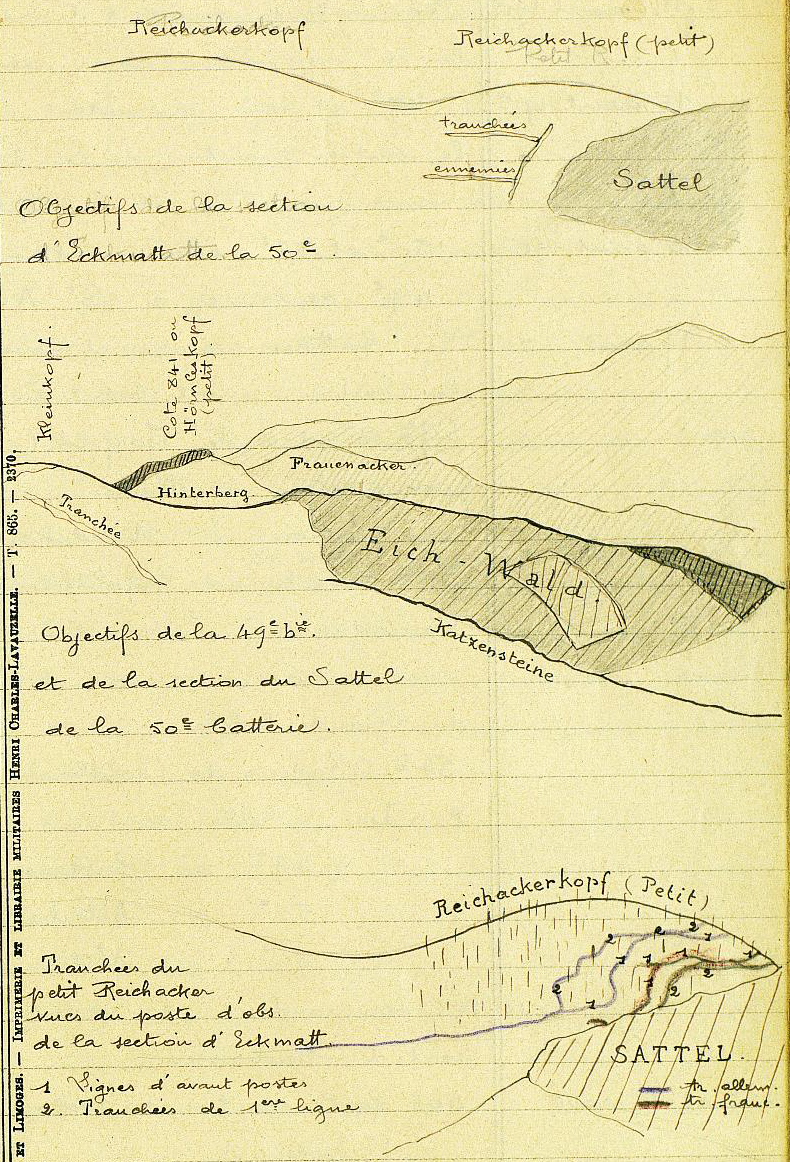 Reichackerkopf
Reichackerkopf (petit)
tranchées
ennemies
Sattel
Objectifs de la section
d'Eckmatt de la 50e.
Kleinkopf.
Cote 841 ou
Hörnleskopf
(petit).
Frauenacker.
Hinterberg
Tranchée
Eich-Wald.
Katzensteine
Objectifs de la 49e bie.
et de la section du Sattel
de la 50e batterie.
Reichackerkopf (Petit)
Tranchées du
petit Reichacker
vues du poste d'obs.
de la section d'Eckmatt.
2
2
1
1
1
1
2
1
2
2
1
1
SATTEL.
1 Lignes d'avant postes
2. Tranchées de 1ere ligne
tr. allem.
tr. franc.
ET LIMOGES. — IMPRIMERIE ET LIBRAIRIE MILITAIRES HENRI CHARLES-LAVAUZELLE. — T. 865. — 2370.